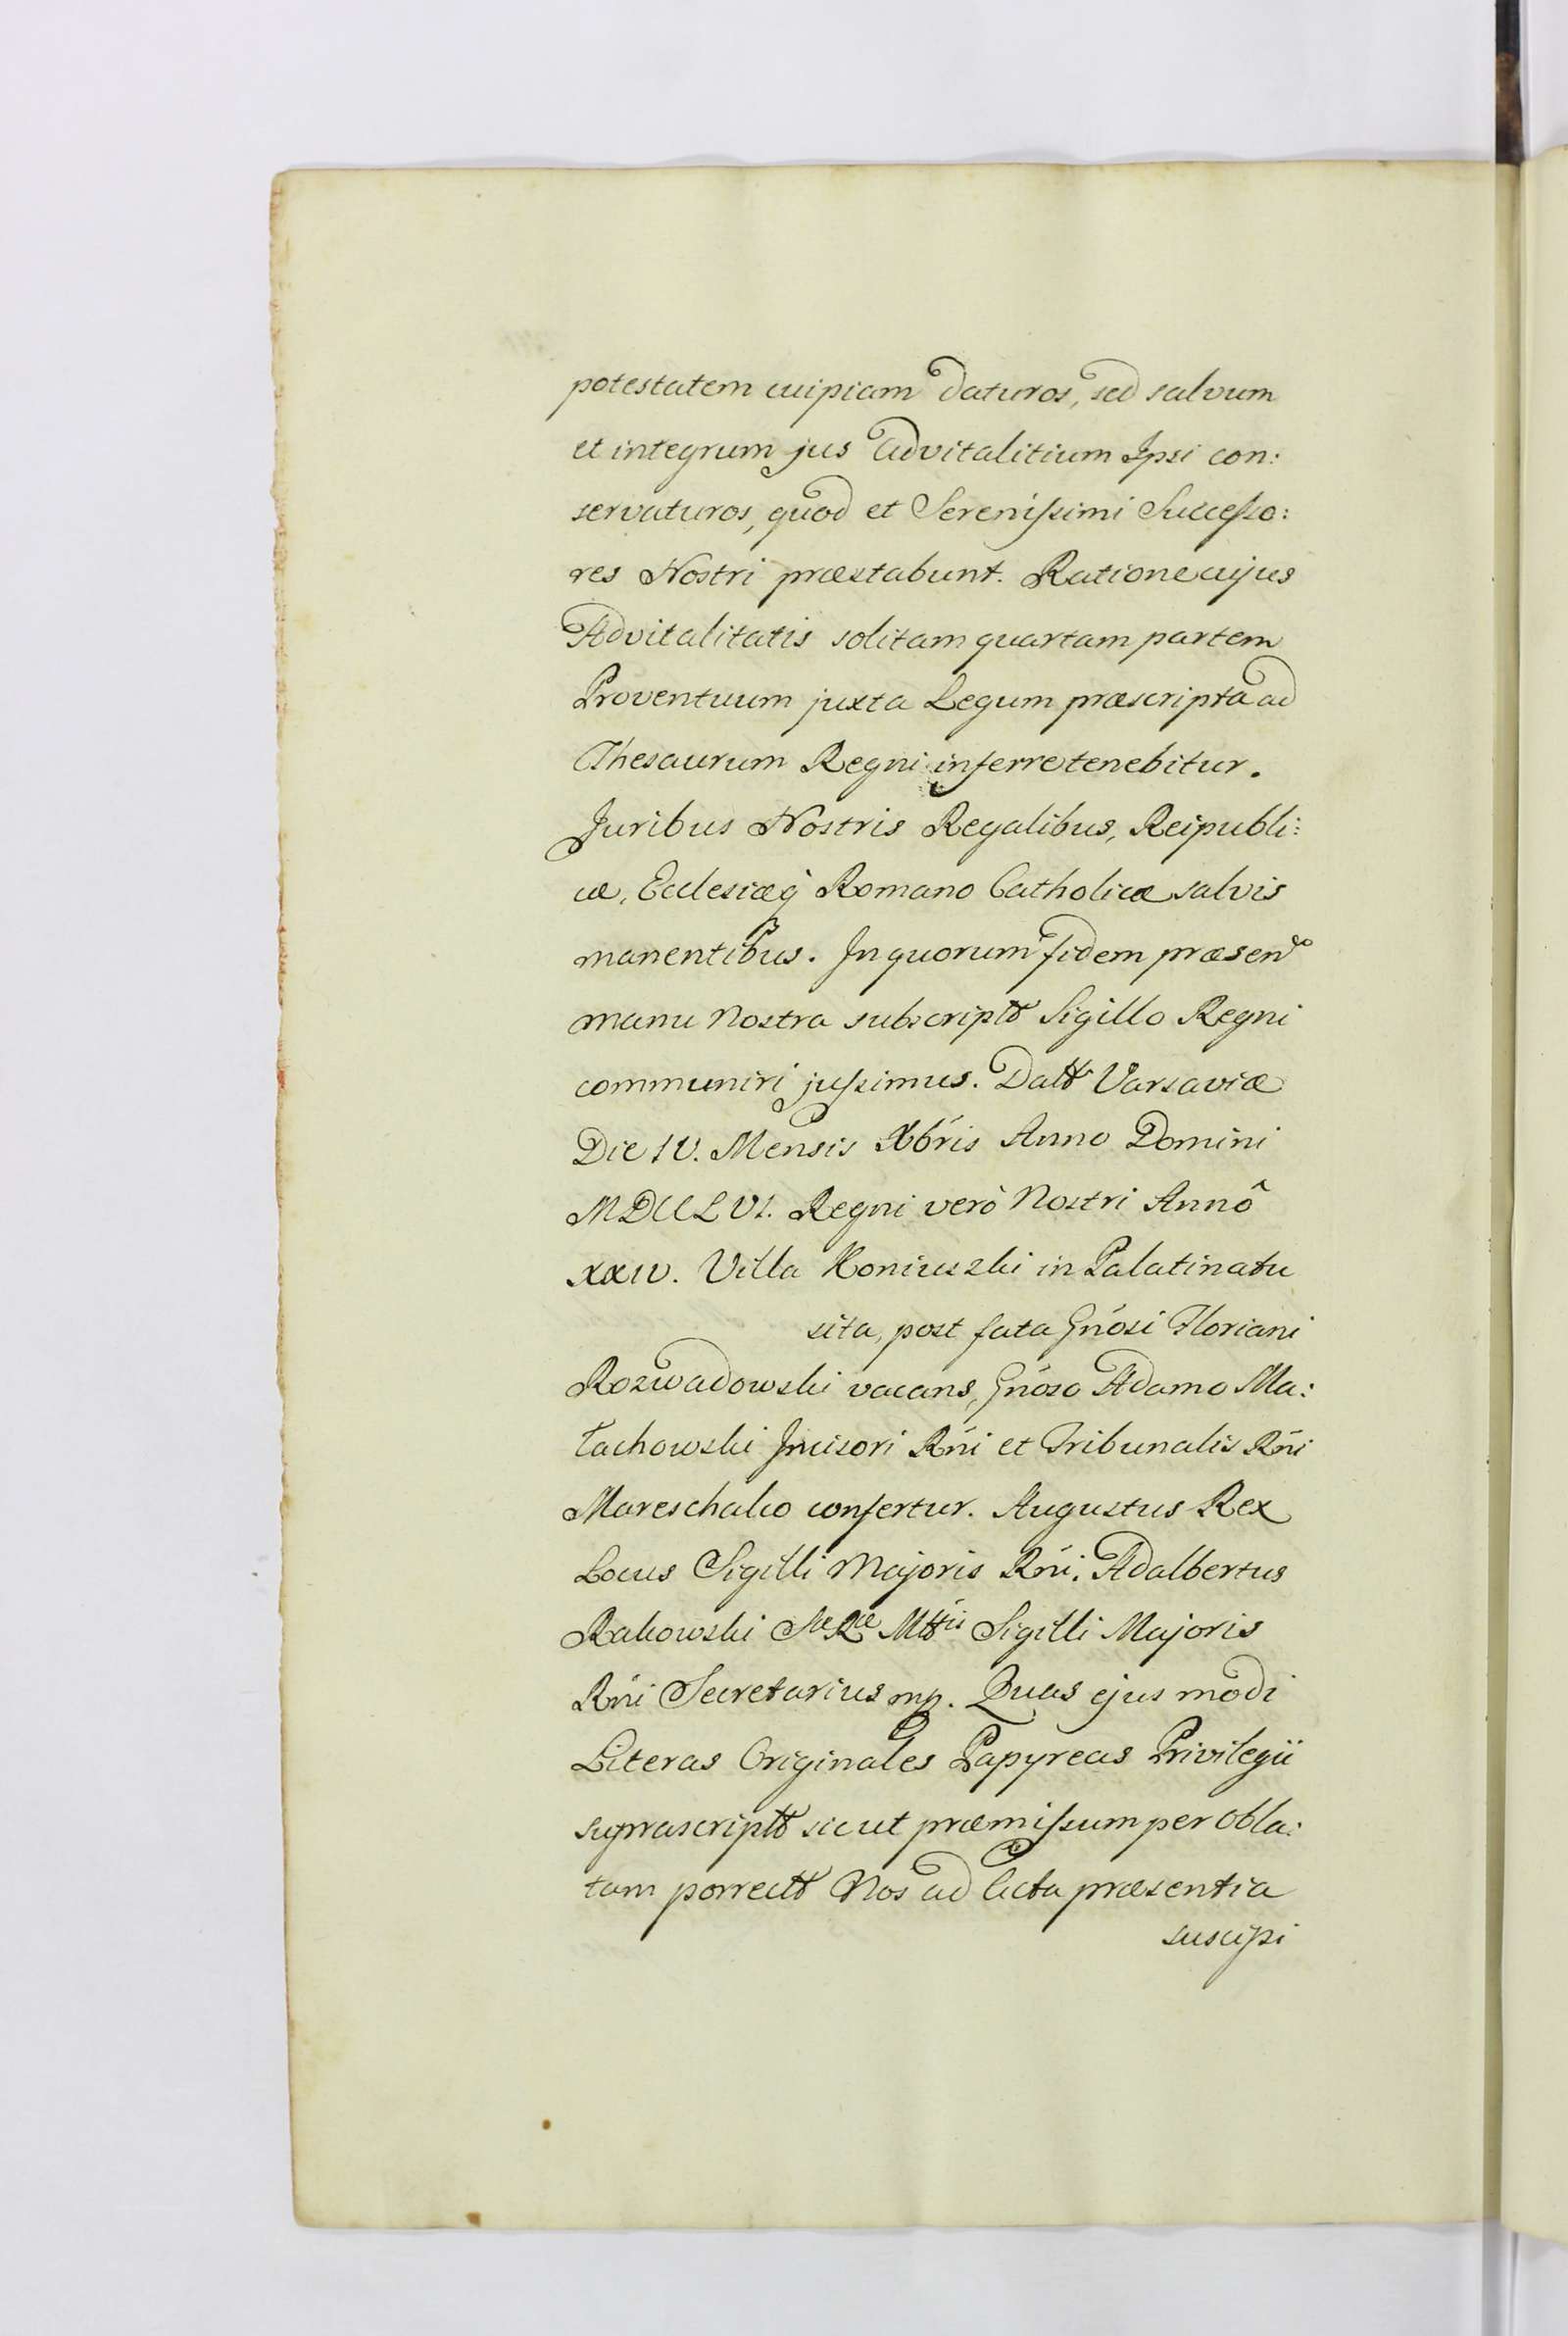 potestatem cuipiam daturos, sed salvum
et integrum jus advitalitium Ipsi con:
servaturos, quod et Serenissimi Successo:
res Nostri præstabunt. Ratione cujus
Advitalitatis solitam quartam partem
Proventuum juxta Legum præscripta ad
Thesaurum Regni inferre tenebitur.
Juribus Nostris Regalibus, Reipubli:
cæ, Ecclesiæq̃ Romano Catholicæ salvis
manentibus. In quorum fidem præsen̄
manu Nostra subscriptt Sigillo Regni
communiri jussimus. Datt Varsaviæ
Die IV. Mensis Xbris Anno Domini
MDCCLVI. Regni verò Nostri Annô
XXIV. Villa Koniuszki in Palatinatu
sita, post fata Gnosi Floriani
Rozwadowski vacans, Gnoso Adamo Ma:
łachowski Incisori Rńi et Tribunalis Rńi
Mareschalco confertur. Augustus Rex
Locus Sigilli Majoris Rńi. Adalbertus
Rakowski Sæ Ræ Mttis Sigilli Majoris
Rńi Secretarius mp. Quas ejus modi
Literas Originales Papyreas Privilegii
suprascriptt sicut præmissum per obla:
tam porrectt Nos ad Acta præsentia
suscipi